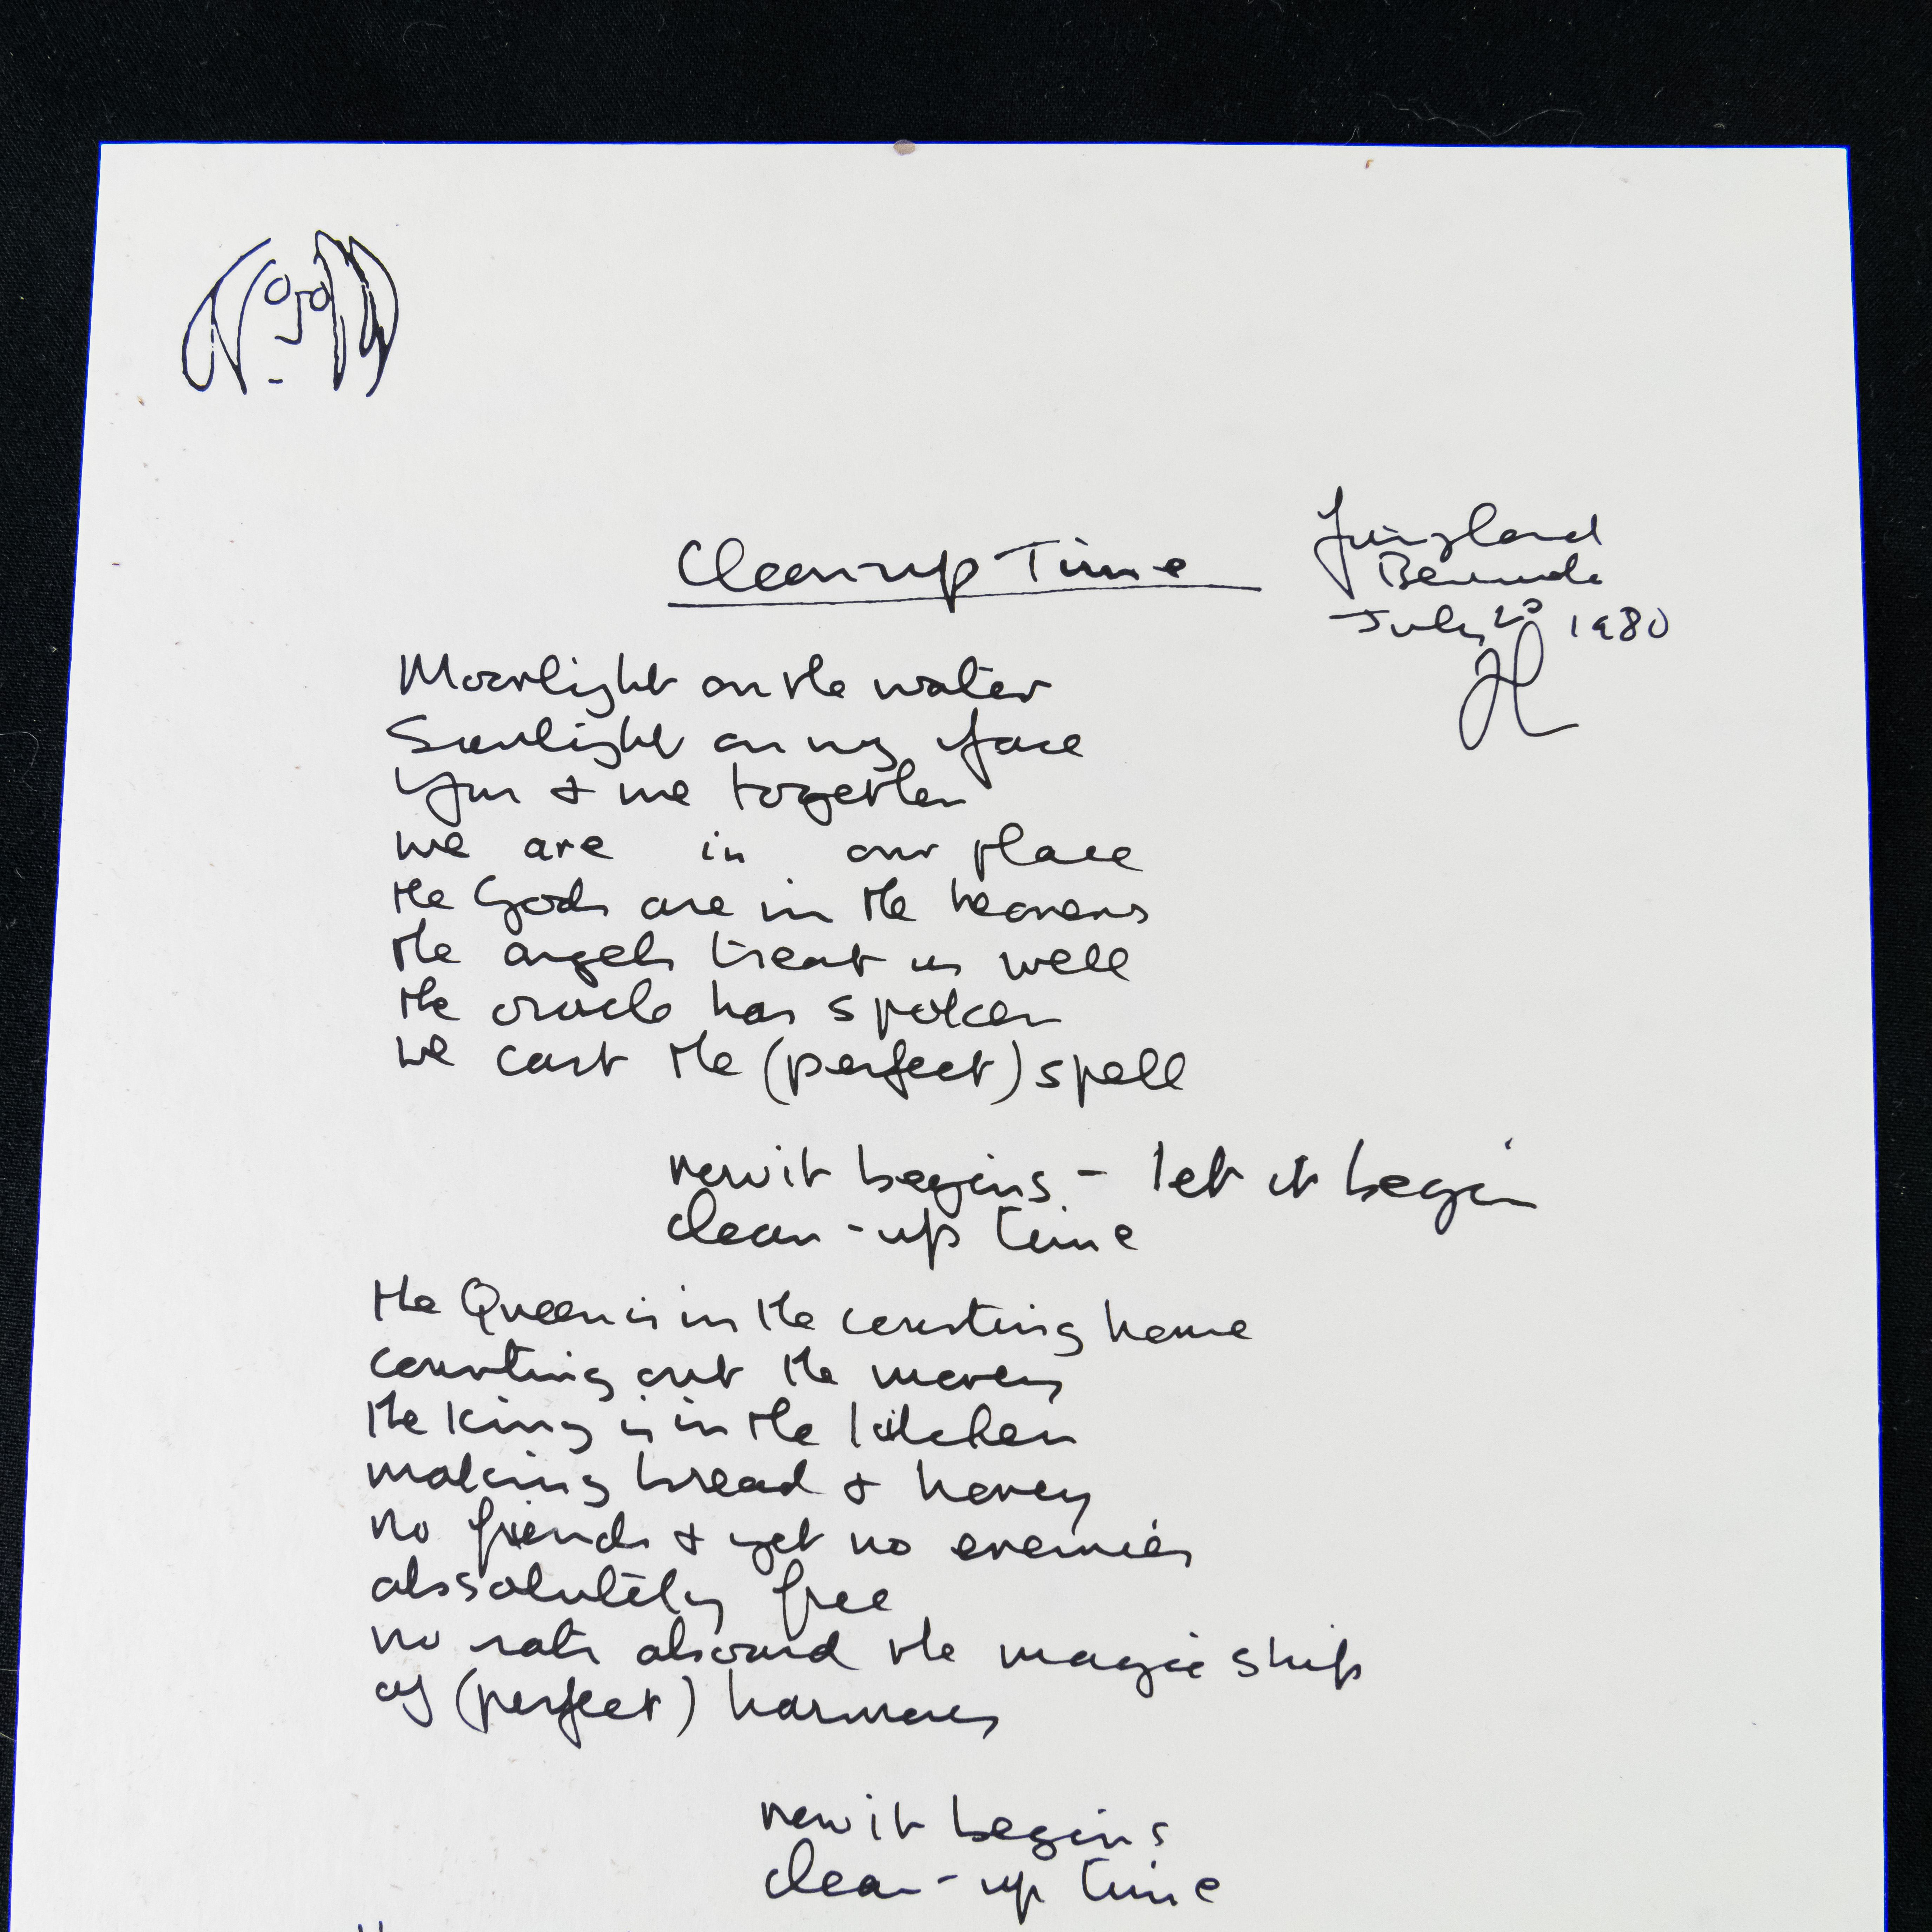 Cleanup Time
Fairyland
Bermuda
July 1980
JL
Moonlight on the water
Sunlight on my face
You & me together
we are in our place
the Gods are in the heavens
the angels treat us well
the oracle has spoken
we cast the (perfect) spell
now it begins - let it begin
clean-up time
the Queen is in the counting house
counting out the money
the King is in the kitchen
making bread & honey
no friends & yet no enemies
abssolutely free
no rats aboard the magic ship
of (perfect) harmony
now it begins
clean-up time